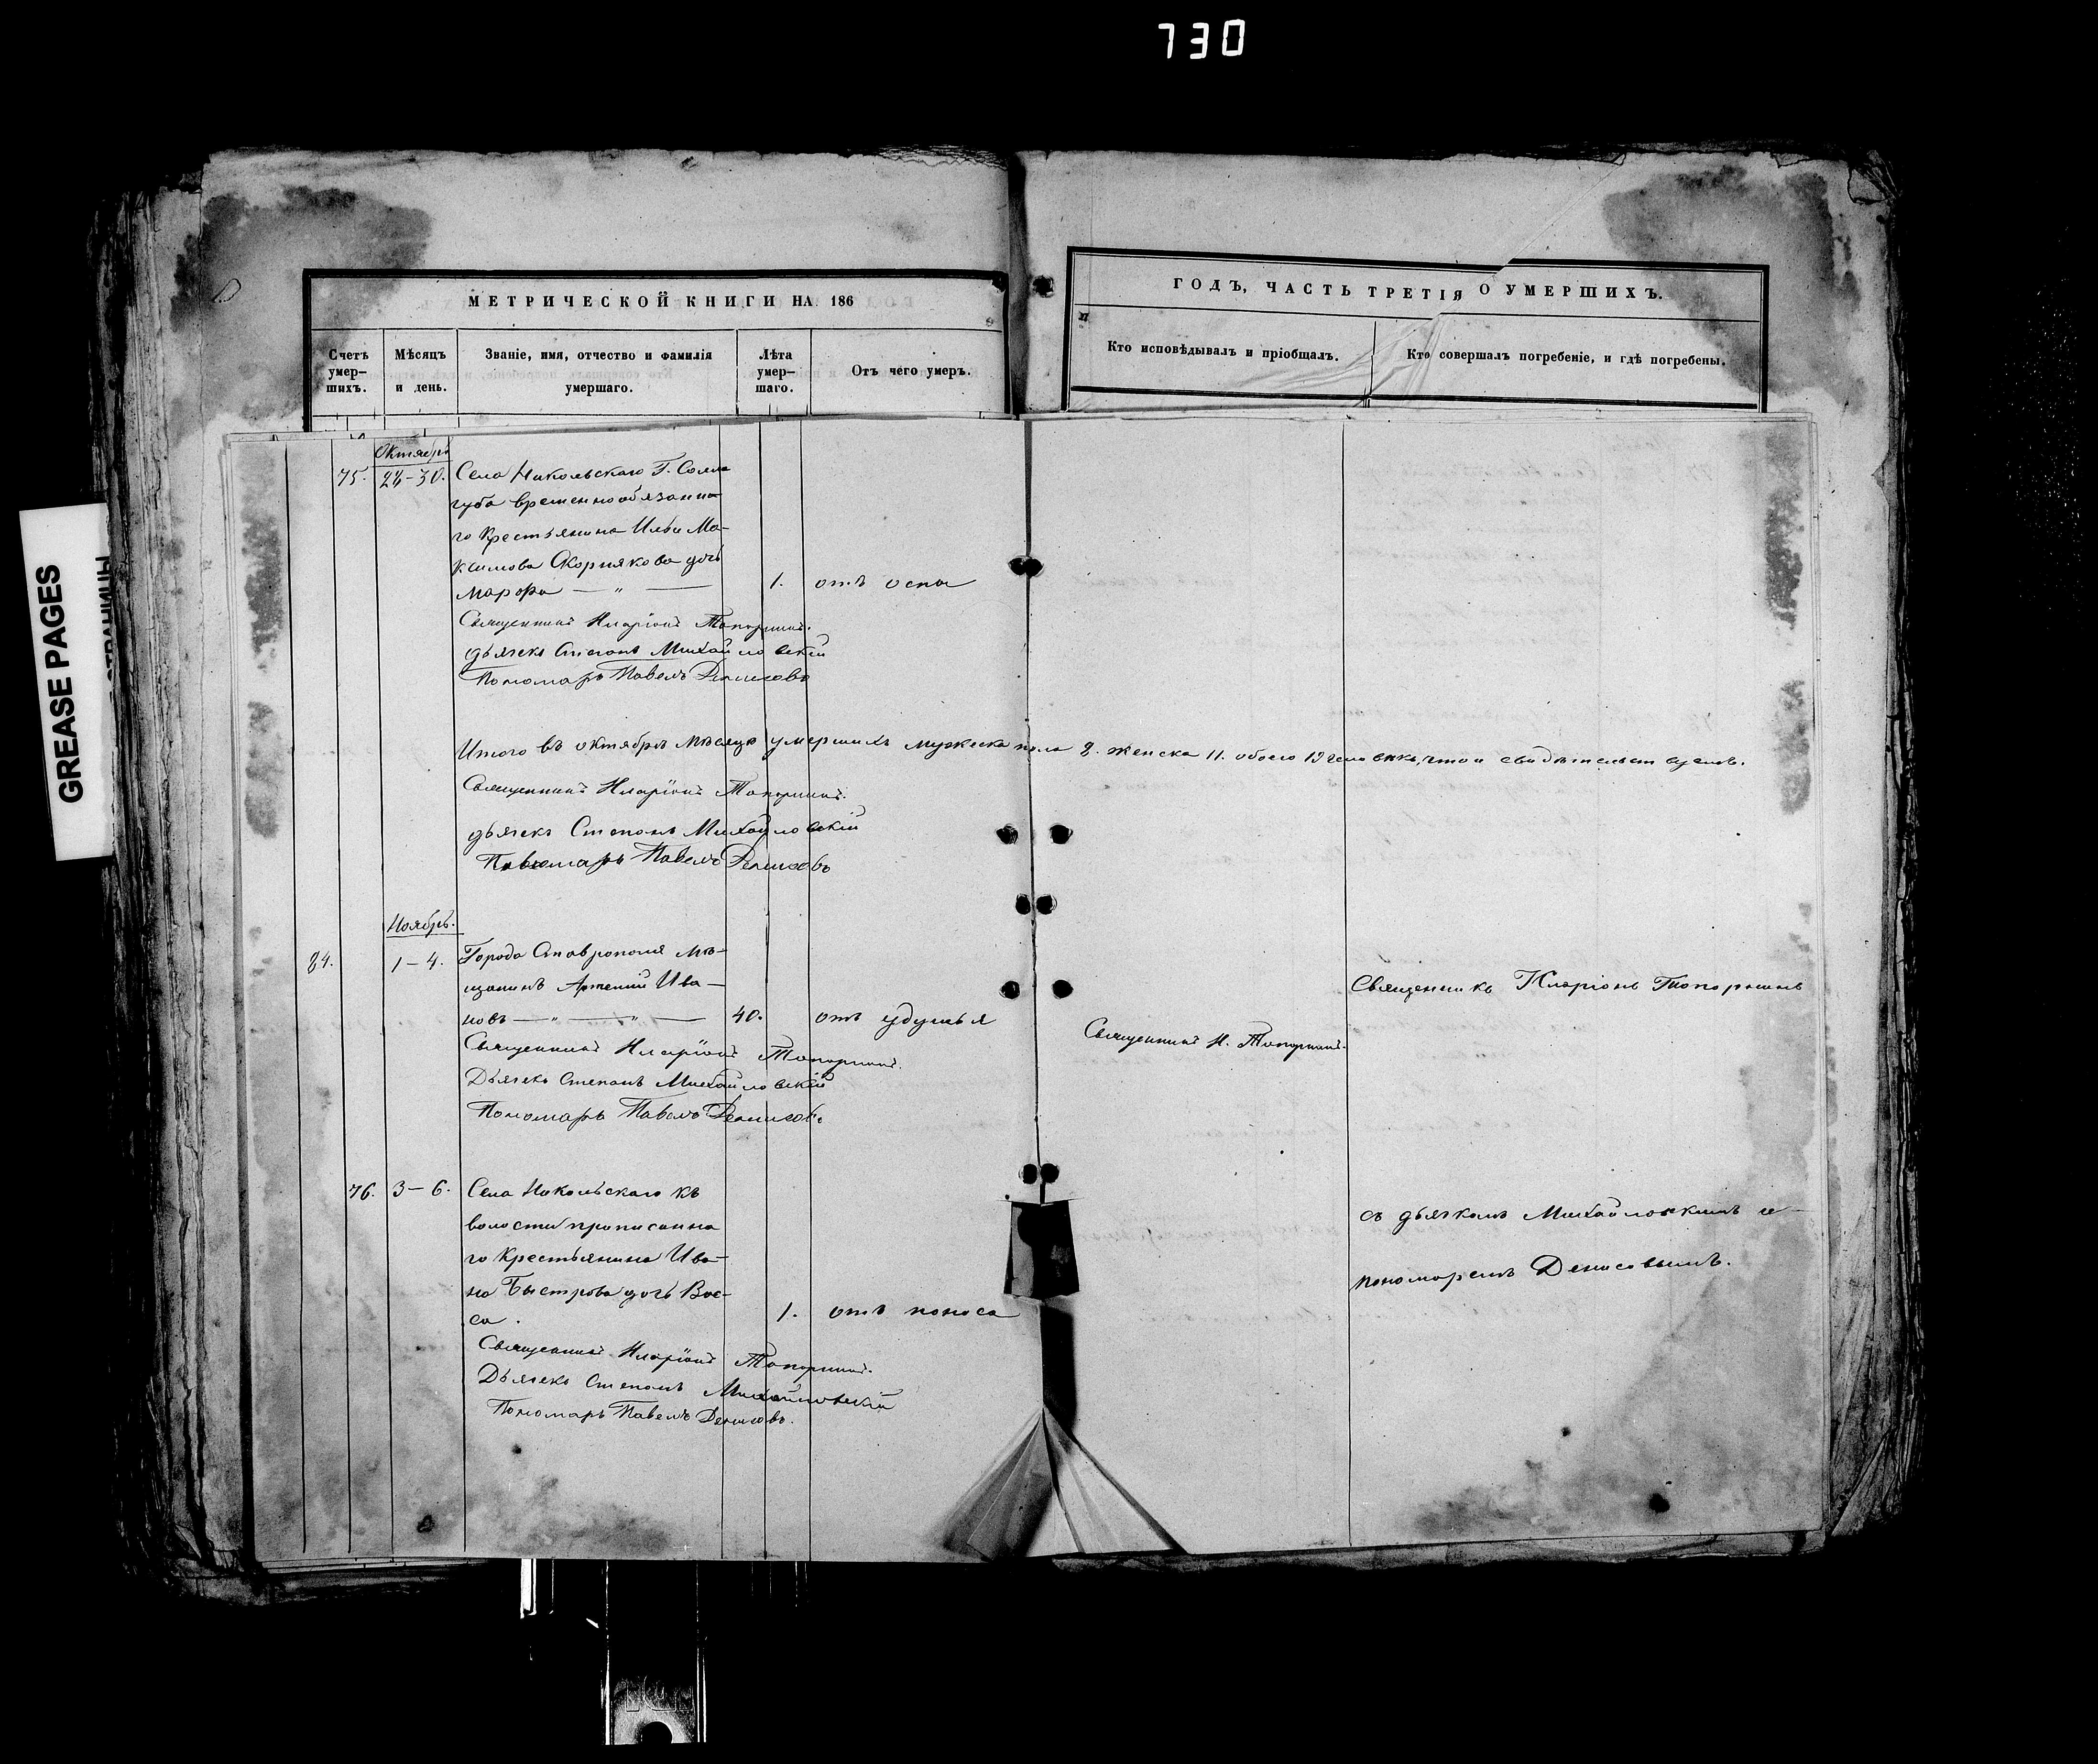 730
GREASE PAGES
МЕТРИЧЕСКОЙ КНИГИ НА 186
ГОДЪ, ЧАСТЬ ТРЕТІЯ О УМЕРШИХЪ.
Счетъ умер-шихъ.
Мѣсяцъ и день.
Званіе, имя, отчество и фамилія умершаго.
Лѣта умер-шаго.
Отъ чего умеръ.
Кто исповѣдывалъ и пріобщалъ.
Кто совершалъ погребеніе, и гдѣ погребены.
Октябрь
75. 24-30. Села Никольскаго Г. Солло
губа временнообязанна
го Крестьянина Ильи Ма-
ксимова Скорнякова дочь
Марфа — " — 1. отъ оспы
Священникъ Иларіонъ Топорнинъ.
дьячекъ Степанъ Михайловскій
Пономарь Павелъ Денисовъ
Итого въ октябрѣ мѣсяцѣ умершихъ мужеска пола 8. женска 11. обоего 19 человѣкъ, что и свидѣтельствуемъ.
Священникъ Иларіонъ Топорнинъ.
дьячекъ Степанъ Михайловскій
Пономарь Павелъ Денисовъ
Ноябрь.
84. 1-4. Города Ставрополя мѣ-
щанинъ Артемій Ива-
новъ — " — " — 40. отъ удушья
Священникъ И. Топорнинъ.
Священникъ Иларіонъ Топорнинъ
Священникъ Иларіонъ Топорнинъ.
Дьячекъ Степанъ Михайловскій
Пономарь Павелъ Денисовъ
76. 3-6. Села Никольскаго къ
волости приписанна
го Крестьянина Ива-
на Быстрова дочь Вас-
са. 1. отъ поноса
съ дьячкомъ Михайловскимъ и
пономаремъ Денисовымъ.
Священникъ Иларіонъ Топорнинъ.
Дьячекъ Степанъ Михайловскій
Пономарь Павелъ Денисовъ.